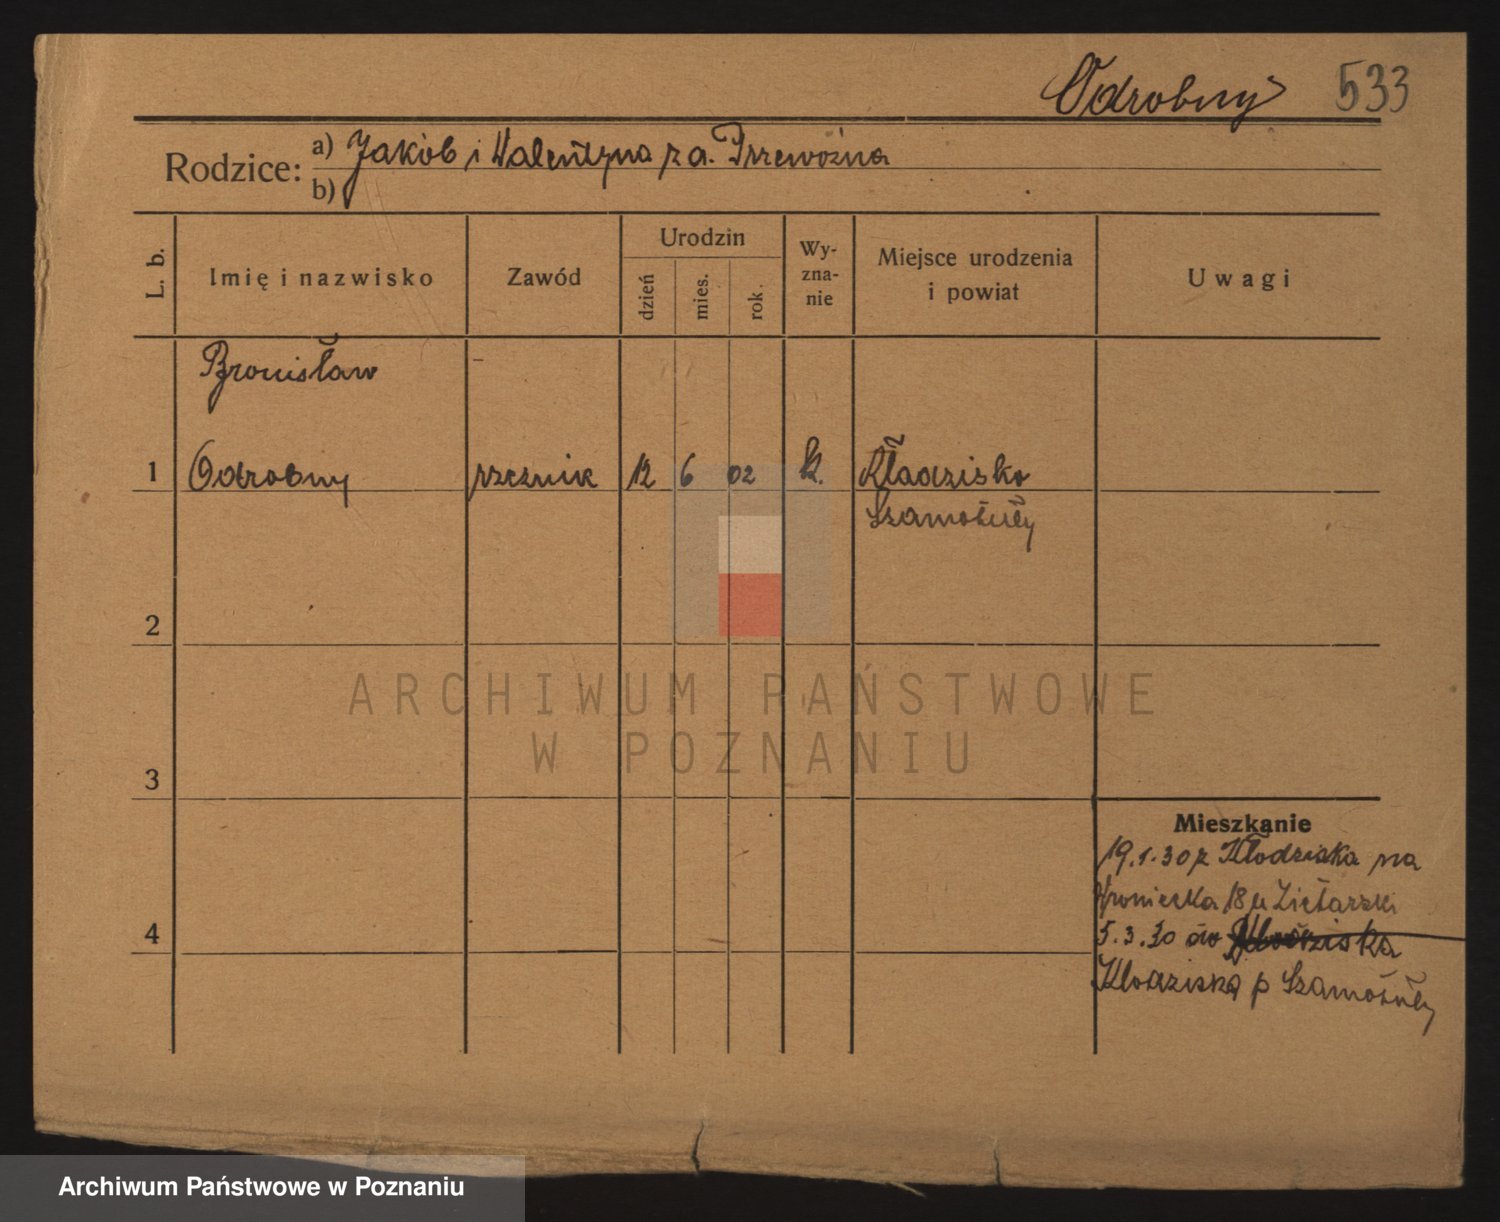 Odrobny 533
Rodzice: a) Jakób i Walentyna z d. Przewoźna
b)
L. b. Imię i nazwisko Zawód Urodzin dzień mies. rok. Wy-zna-nie Miejsce urodzenia i powiat Uwagi
Bronisław
1 Odrobny rzeźnik 12 6 02 k. Kładzisko
Szamotuły
2
ARCHIWUM PAŃSTWOWE
W POZNANIU
3
Mieszkanie
19.1.30 z Kłodziska na
Wroniecka 18 u
4 5.3.30 do
Kłodziska p Szamotuły
Archiwum Państwowe w Poznaniu